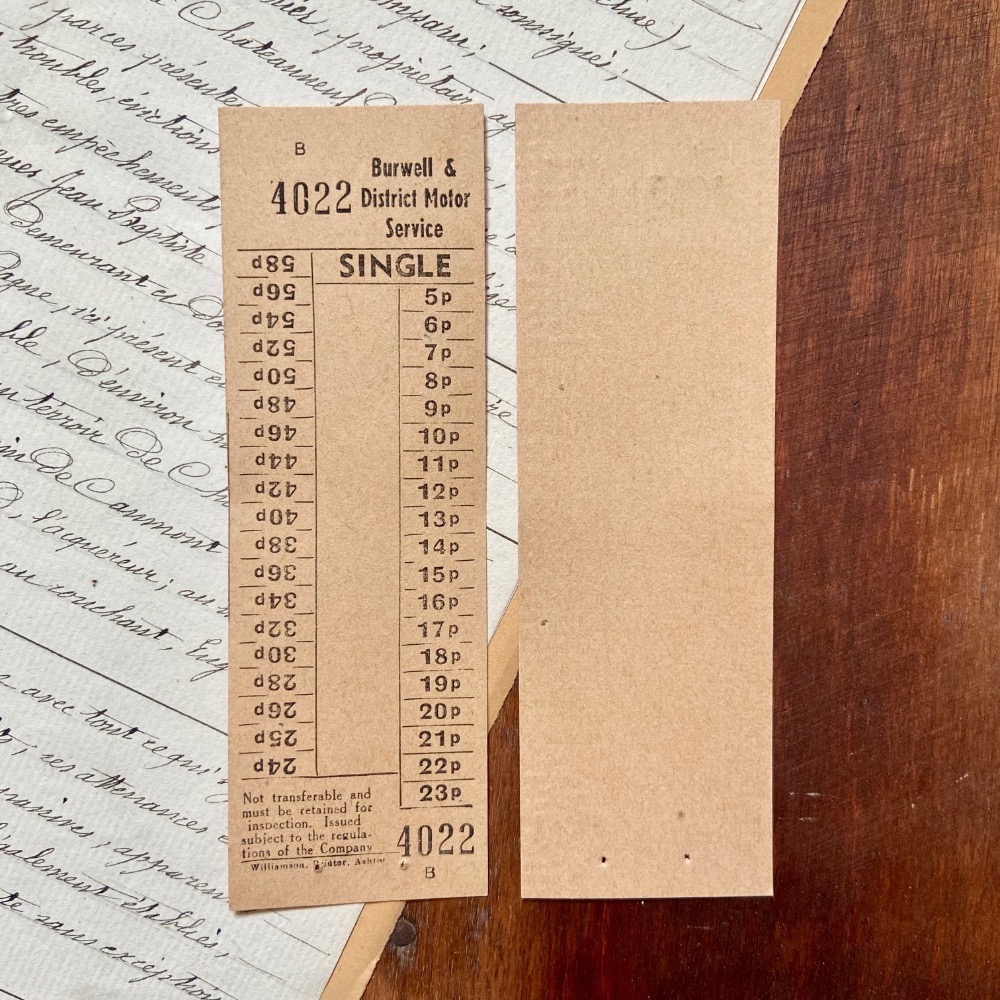 B
4022
Burwell &
District Motor
Service
SINGLE
58p
56p
54p
52p
50p
48p
46p
44p
42p
40p
38p
36p
34p
32p
30p
28p
26p
25p
24p
5p
6p
7p
8p
9p
10p
11p
12p
13p
14p
15p
16p
17p
18p
19p
20p
21p
22p
23p
Not transferable and
must be retained for
inspection. Issued
subject to the regula-
tions of the Company
Williamson, Printer, Ashton
4022
B
parces présentes
Chateauneuf
propriétair
troubles, évictions
tres empêchements
Jean Baptiste
Demeurant
ici présent
d'environ
terroir De
De Caumont
l'acquéreur; au
au couchant,
avec tout ce qui
ses attenances
apparen
également établies,
sans exception